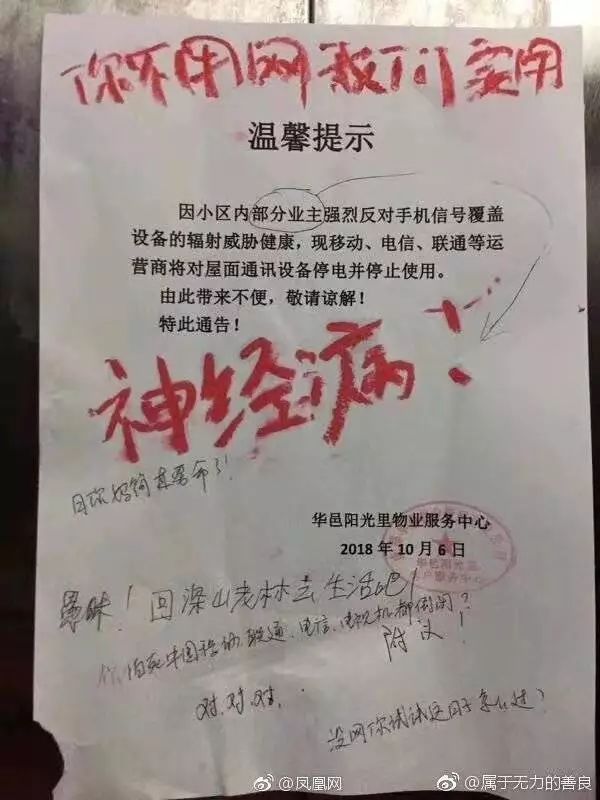 你不用网我们实用
温馨提示
因小区内部分业主强烈反对手机信号覆盖
设备的辐射威胁健康，现移动、电信、联通等运
营商将对屋面通讯设备停电并停止使用。
由此带来不便，敬请谅解！
特此通告！
神经病！
华邑阳光里物业服务中心
2018 年 10 月 6 日
华邑阳光里
客户服务中心
愚昧！回深山老林去生活吧！
附议！
对.对.对.
没网你试试这日子怎么过？
凤凰网
@属于无力的善良